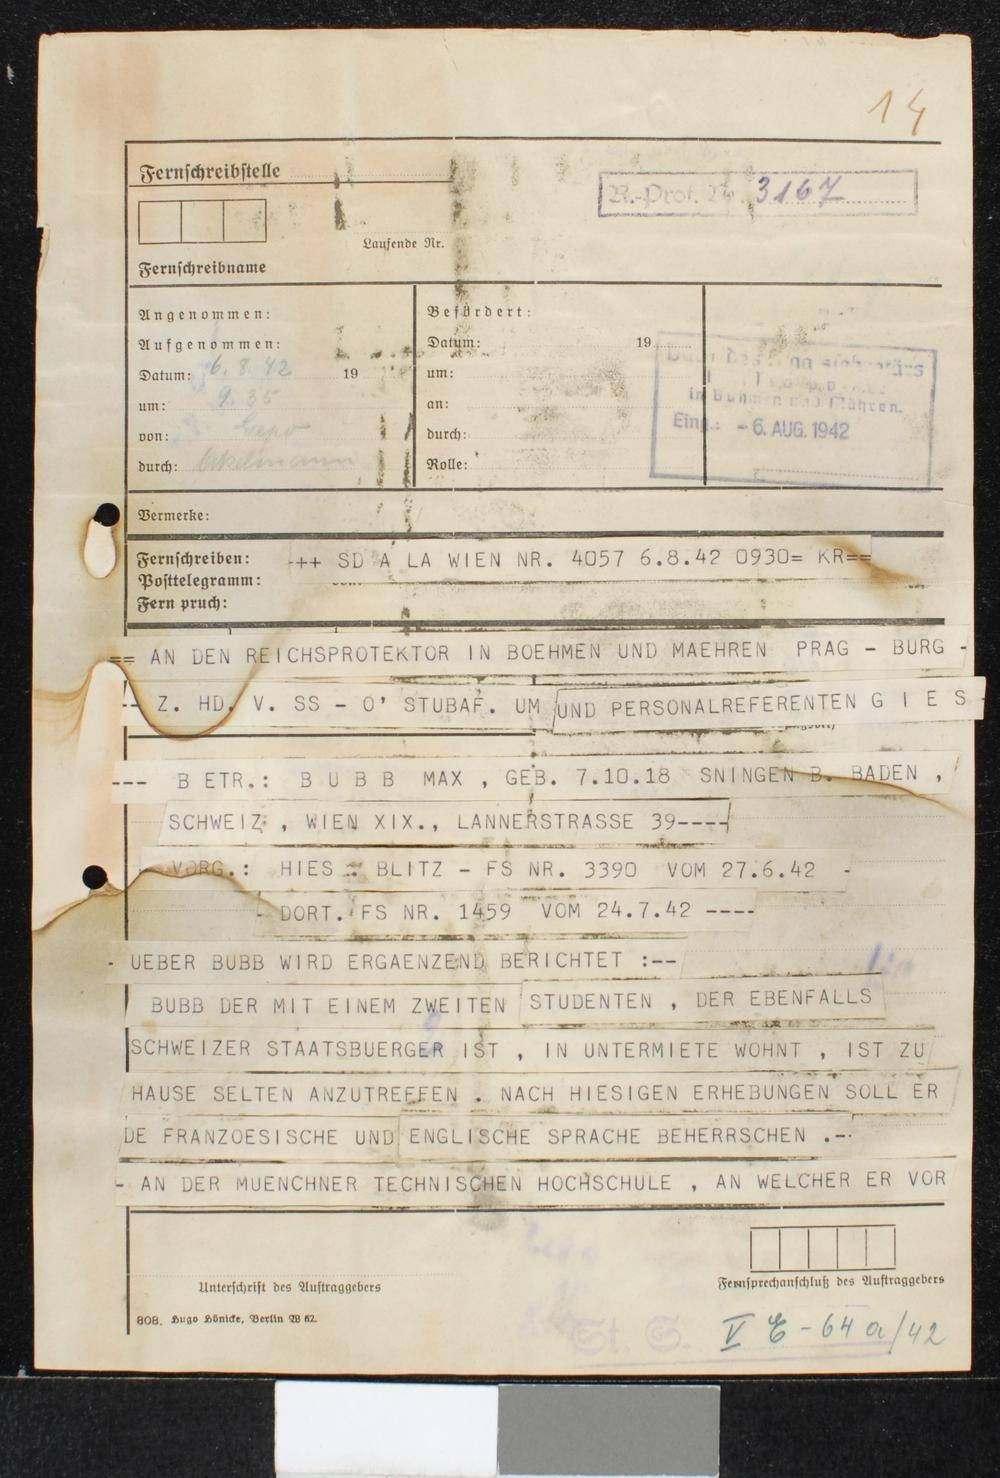 14
Fernschreibstelle
R.-Prof. 3167
Laufende Nr.
Fernschreibname
Angenommen:
Befördert:
Aufgenommen:
Datum: 19
Datum: 6.8.42 19
um:
um: 9.35
an:
in Böhmen und Mähren.
von:
durch:
Eing.: - 6. AUG. 1942
durch:
Rolle:
Vermerke:
Fernschreiben: -++ SD A LA WIEN NR. 4057 6.8.42 0930= KR==
Posttelegramm:
Fern pruch:
== AN DEN REICHSPROTEKTOR IN BOEHMEN UND MAEHREN PRAG - BURG -
-- Z. HD. V. SS - O' STUBAF. UM UND PERSONALREFERENTEN G I E S
--- B ETR.: B U B B MAX , GEB. 7.10.18 SNINGEN B. BADEN ,
SCHWEIZ , WIEN XIX., LANNERSTRASSE 39----
VORG.: HIES : BLITZ - FS NR. 3390 VOM 27.6.42 -
- DORT. FS NR. 1459 VOM 24.7.42 ----
- UEBER BUBB WIRD ERGAENZEND BERICHTET :--
BUBB DER MIT EINEM ZWEITEN STUDENTEN , DER EBENFALLS
SCHWEIZER STAATSBUERGER IST , IN UNTERMIETE WOHNT , IST ZU
HAUSE SELTEN ANZUTREFFEN . NACH HIESIGEN ERHEBUNGEN SOLL ER
DE FRANZOESISCHE UND ENGLISCHE SPRACHE BEHERRSCHEN .-
- AN DER MUENCHNER TECHNISCHEN HOCHSCHULE , AN WELCHER ER VOR
Unterschrift des Auftraggebers
Fernsprechanschluß des Auftraggebers
808. Hugo Hönicke, Berlin W 62.
St. S. V E - 64 a/42